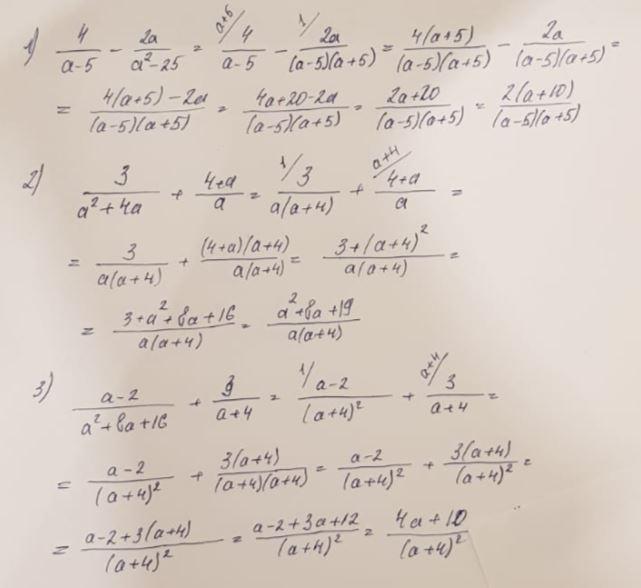 1) 4/(a-5) - 2a/(a²-25) = ᵃ⁺⁵/ 4/(a-5) - ¹/ 2a/((a-5)(a+5)) = 4(a+5)/((a-5)(a+5)) - 2a/((a-5)(a+5)) =
= (4(a+5)-2a)/((a-5)(a+5)) = (4a+20-2a)/((a-5)(a+5)) = (2a+20)/((a-5)(a+5)) = 2(a+10)/((a-5)(a+5))
2) 3/(a²+4a) + (4+a)/a = ¹/ 3/(a(a+4)) + ᵃ⁺⁴/ (4+a)/a =
= 3/(a(a+4)) + (4+a)(a+4)/(a(a+4)) = (3+(a+4)²)/(a(a+4)) =
= (3+a²+8a+16)/(a(a+4)) = (a²+8a+19)/(a(a+4))
3) (a-2)/(a²+8a+16) + 3/(a+4) = ¹/ (a-2)/(a+4)² + ᵃ⁺⁴/ 3/(a+4) =
= (a-2)/(a+4)² + 3(a+4)/((a+4)(a+4)) = (a-2)/(a+4)² + 3(a+4)/(a+4)² =
= (a-2+3(a+4))/(a+4)² = (a-2+3a+12)/(a+4)² = (4a+10)/(a+4)²